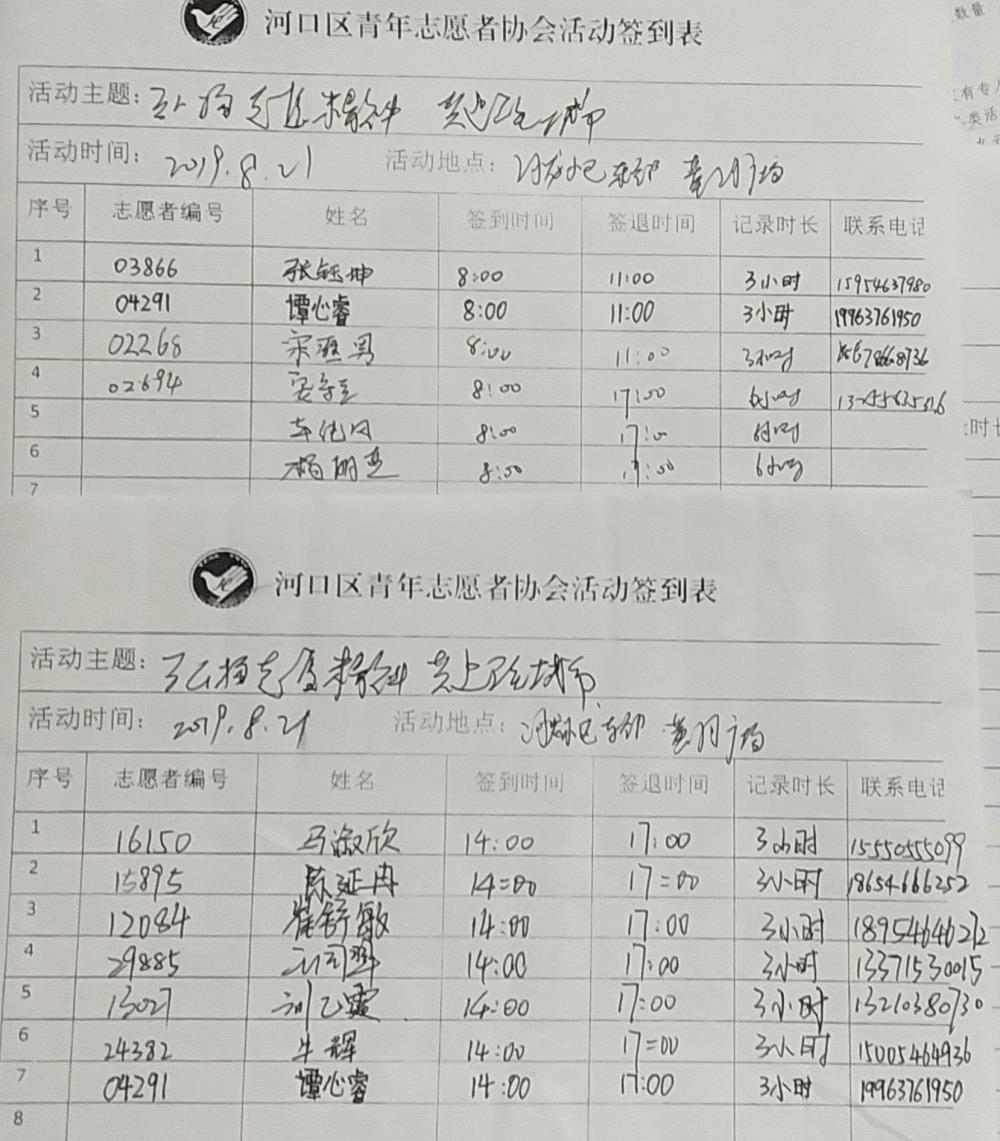 河口区青年志愿者协会活动签到表
数量
有专人
类活
活动主题: 弘扬志愿精神 共建文明城市
活动时间: 2019.8.21 活动地点: 黄河广场
序号 志愿者编号 姓名 签到时间 签退时间 记录时长 联系电话
1 03866 张钰坤 8:00 11:00 3小时 15954637980
2 04291 谭心睿 8:00 11:00 3小时 19963761950
3 02268 8:00 11:00 3小时
4 02694 8:00 17:00 6小时
5 8:00 17:00 6小时
6 杨明 8:00 17:00 6小时
7
河口区青年志愿者协会活动签到表
活动主题: 弘扬志愿精神
活动时间: 2019.8.21 活动地点: 黄河广场
序号 志愿者编号 姓名 签到时间 签退时间 记录时长 联系电话
1 16150 马淑欣 14:00 17:00 3小时 15550555099
2 15895 陈延冉 14=00 17=00 3小时 18654666252
3 12084 崔舒敏 14:00 17:00 3小时 18954646212
4 29885 14:00 17:00 3小时 13371530015
5 13027 刘乙霖 14:00 17:00 3小时 13210380730
6 24382 牛辉 14:00 17=00 3小时 15005464936
7 04291 谭心睿 14:00 17:00 3小时 19963761950
8